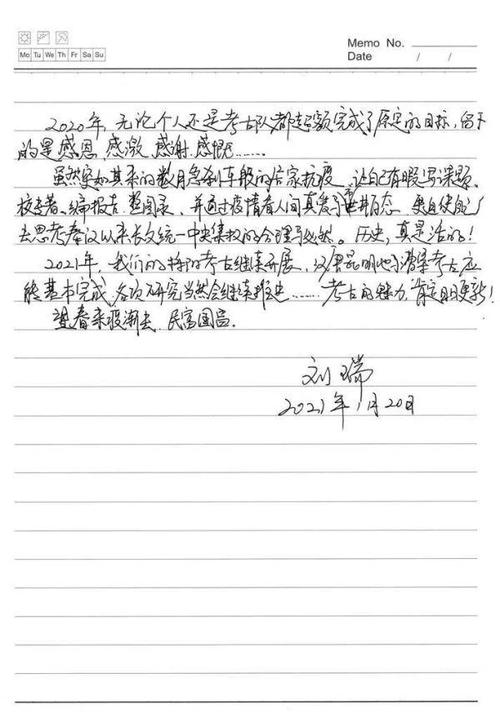 Memo No.
Mo Tu We Th Fr Sa Su
Date / /
2020年,无论个人还是考古队都超额完成了原定的目标,留下
的是感恩、感激、感谢、感慨……
虽然突如其来的数月急刹车般的居家抗疫,让自己有暇写课题、
校专著、编报告、整图录,并通过疫情看人间真爱与世井百态,更自使自己
去思考秦汉以来长久统一中央集权的合理与必然。历史,真是活的!
2021年,我们的持阿考古继续开展,汉唐昆明池与漕渠考古应
能基本完成,各项研究当然会继续推进……考古的魅力,肯定日日更新!
望春来疫渐去,民富国昌。
刘瑞
2021年1月20日